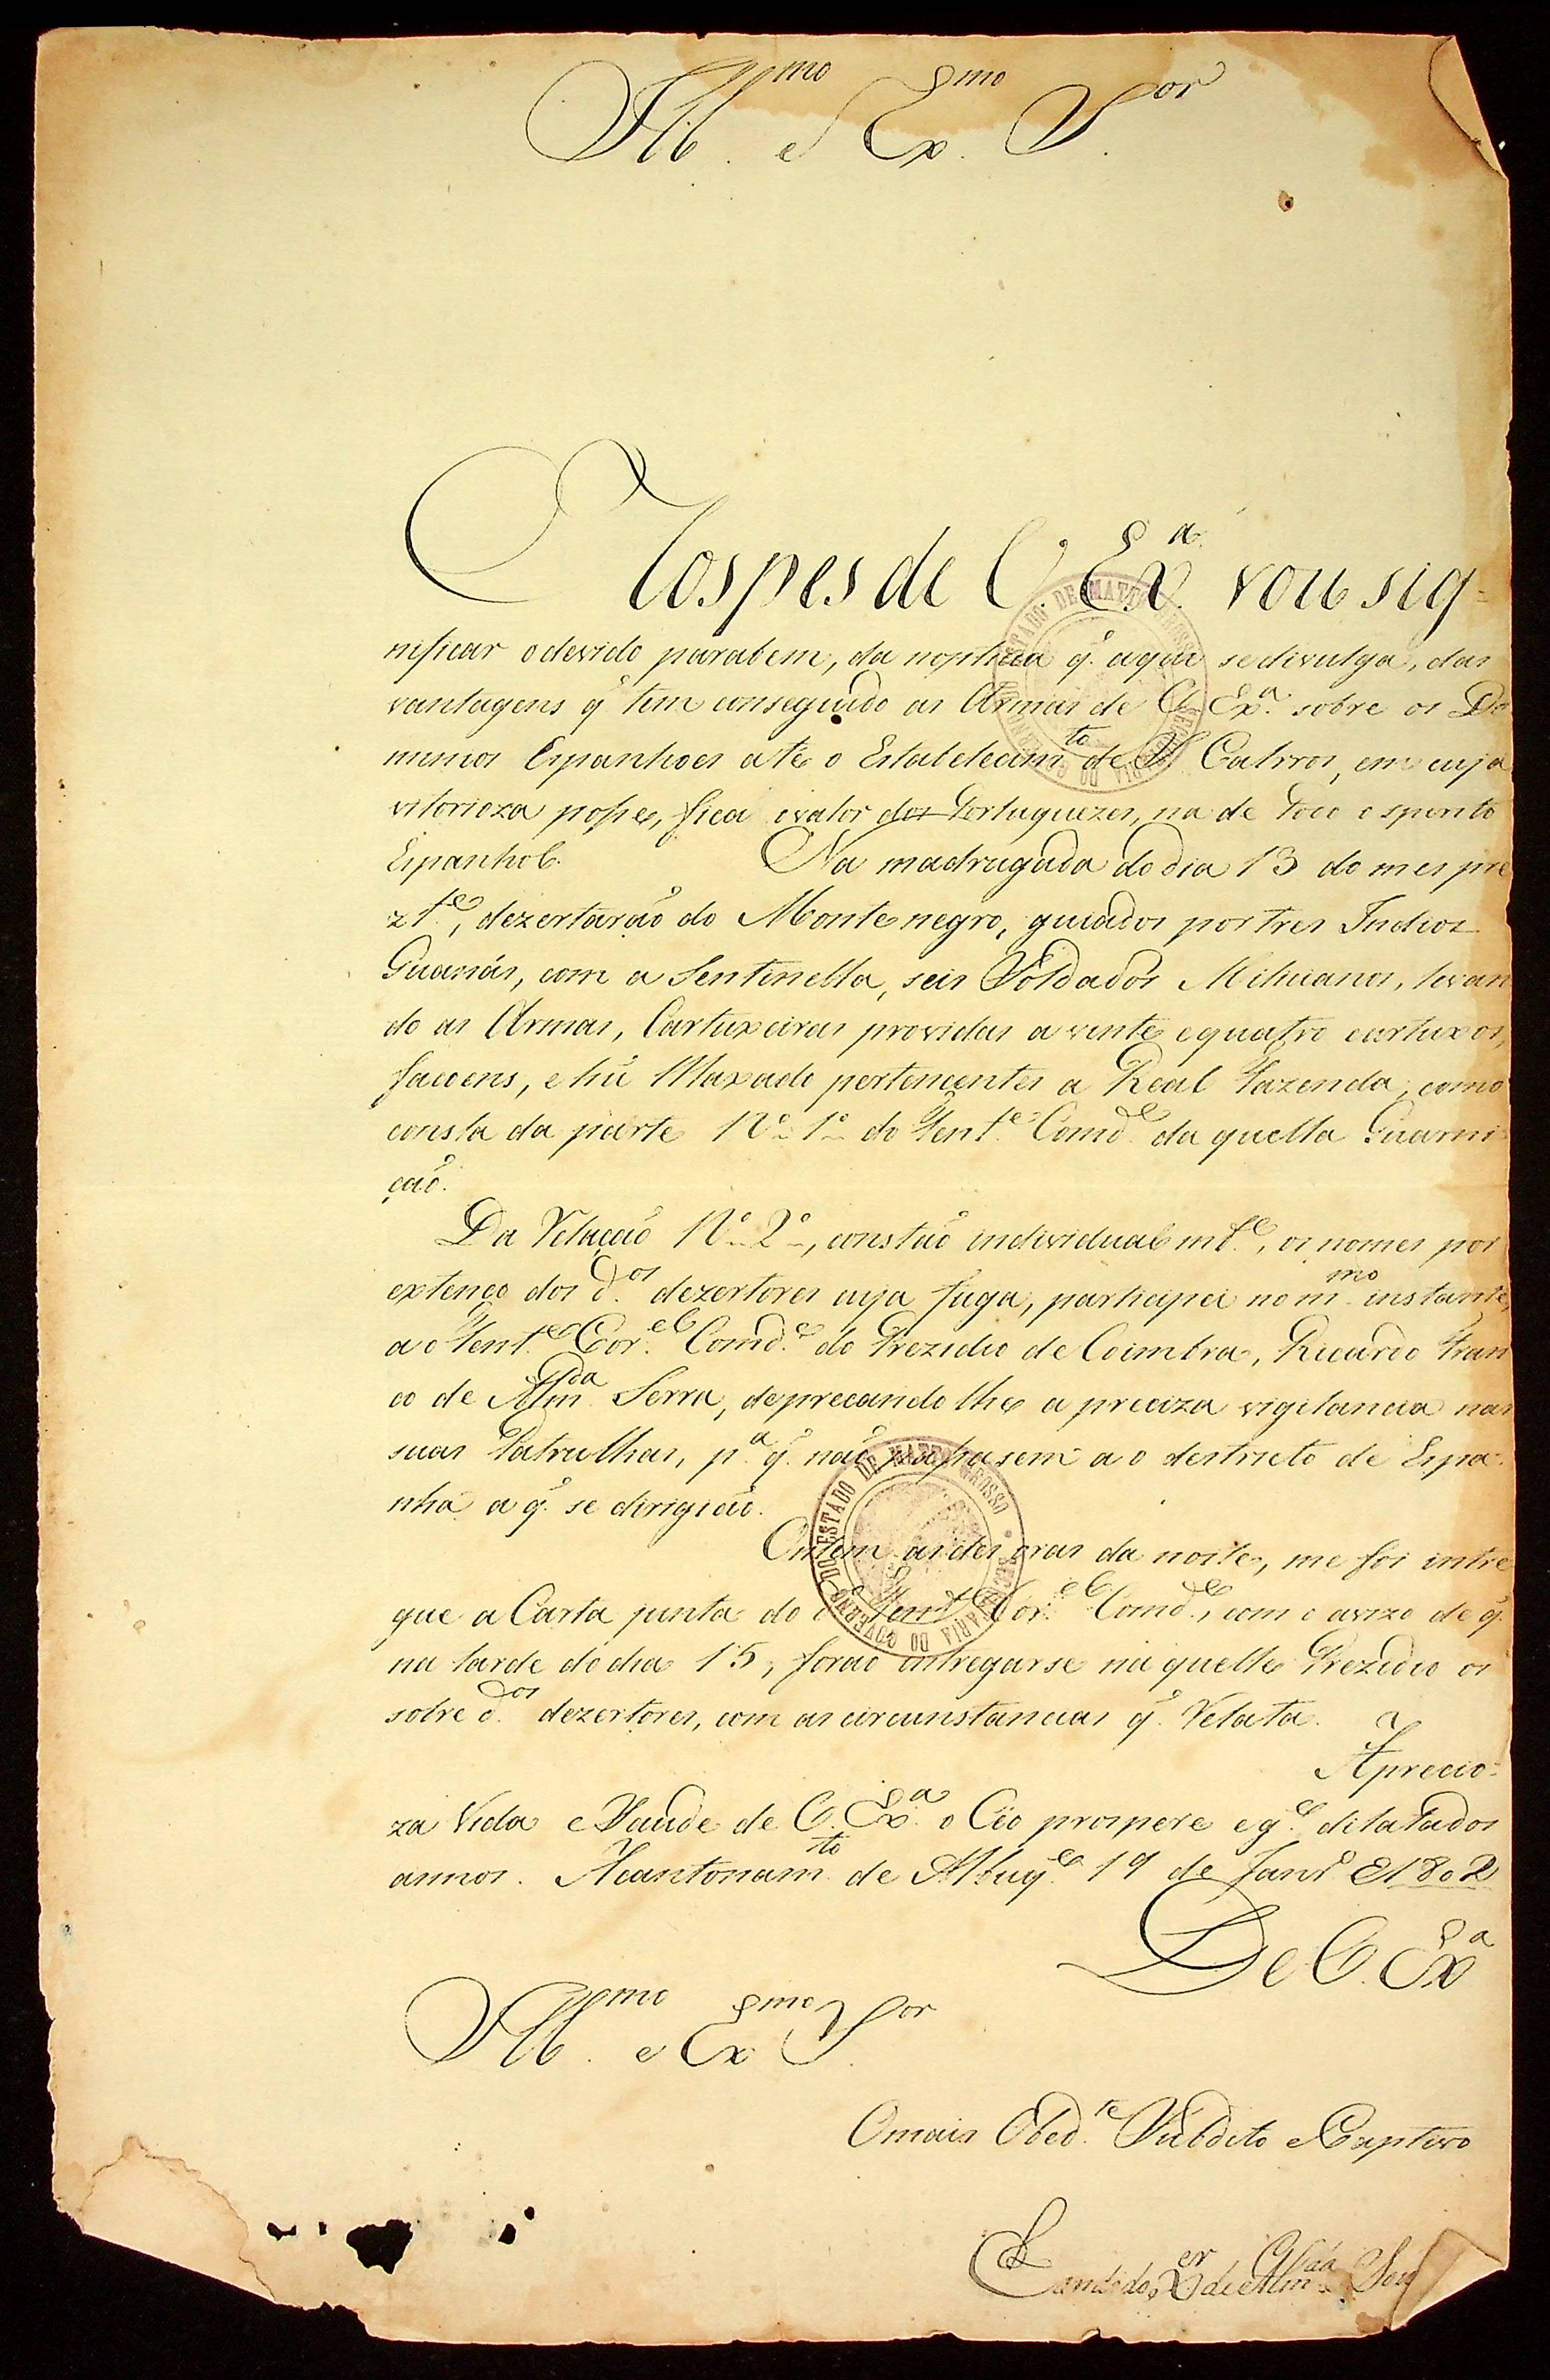 Ill.mo e Ex.mo S.or
Aos pes de V. Ex.a vou sig=
nificar o devido parabem, da noticia q̃ aqui se divulga, das
vantagens q̃ tem conseguido as Armas de V. Ex.a sobre os Do
minios Espanhoes até o Estabelecim.to de S. Carlos, em cuja
vitorioza posse, fica o valor dos Portuguezes, na de todo espirito
Espanhol. Na madrugada do dia 13 do mes pre
z.te, dezertarão do Monte negro, guiados por tres Indios
Guanás, com a Sentinella, seis Soldados Milicianos, levan
do as Armas, Cartuxeiras providas a vinte e quatro cartuxos,
facoens, e hũ Maxado pertencentes a Real Fazenda, como
consta da parte N.o 1.o do Ten.te Comd.e da quella Guarni
ção.
Da Relação N.o 2.o, constão individualm.te, os nomes por
extenço dos d.os dezertores cuja fuga, participei no m.mo instante,
ao Ten.te Cor.el Comd.e do Prezidio de Coimbra, Ricardo Fran
co de Alm.da Serra, deprecandolhe a preciza vigilancia nas
suas Patrulhas, p.a q̃ não pasem ao destricto de Espa
nha a q̃ se dirigião.
Ontem as des oras da noite, me foi intre
gue a Carta junta do d.o Ten.te Cor.el Comd.e, com o avizo de q̃
na tarde do dia 15, forão intregarse na quelle Prezidio os
sobre d.os dezertores, com as circunstancias q̃ Relata.
A precio=
za Vida e Saude de V. Ex.a o Céo prospere e g.e dilatados
annos. Acantonam.to de Albuq.e 19 de Janr.o de 1802
De V. Ex.a
Ill.mo e Ex.mo S.or
O mais Obed.te Subdito e Captivo
Candido X.er de Alm.da Sou
DO ESTADO DE MATTO GROSSO
SECRETARIA DO GOVERNO
DO ESTADO DE MATTO GROSSO
SECRETARIA DO GOVERNO